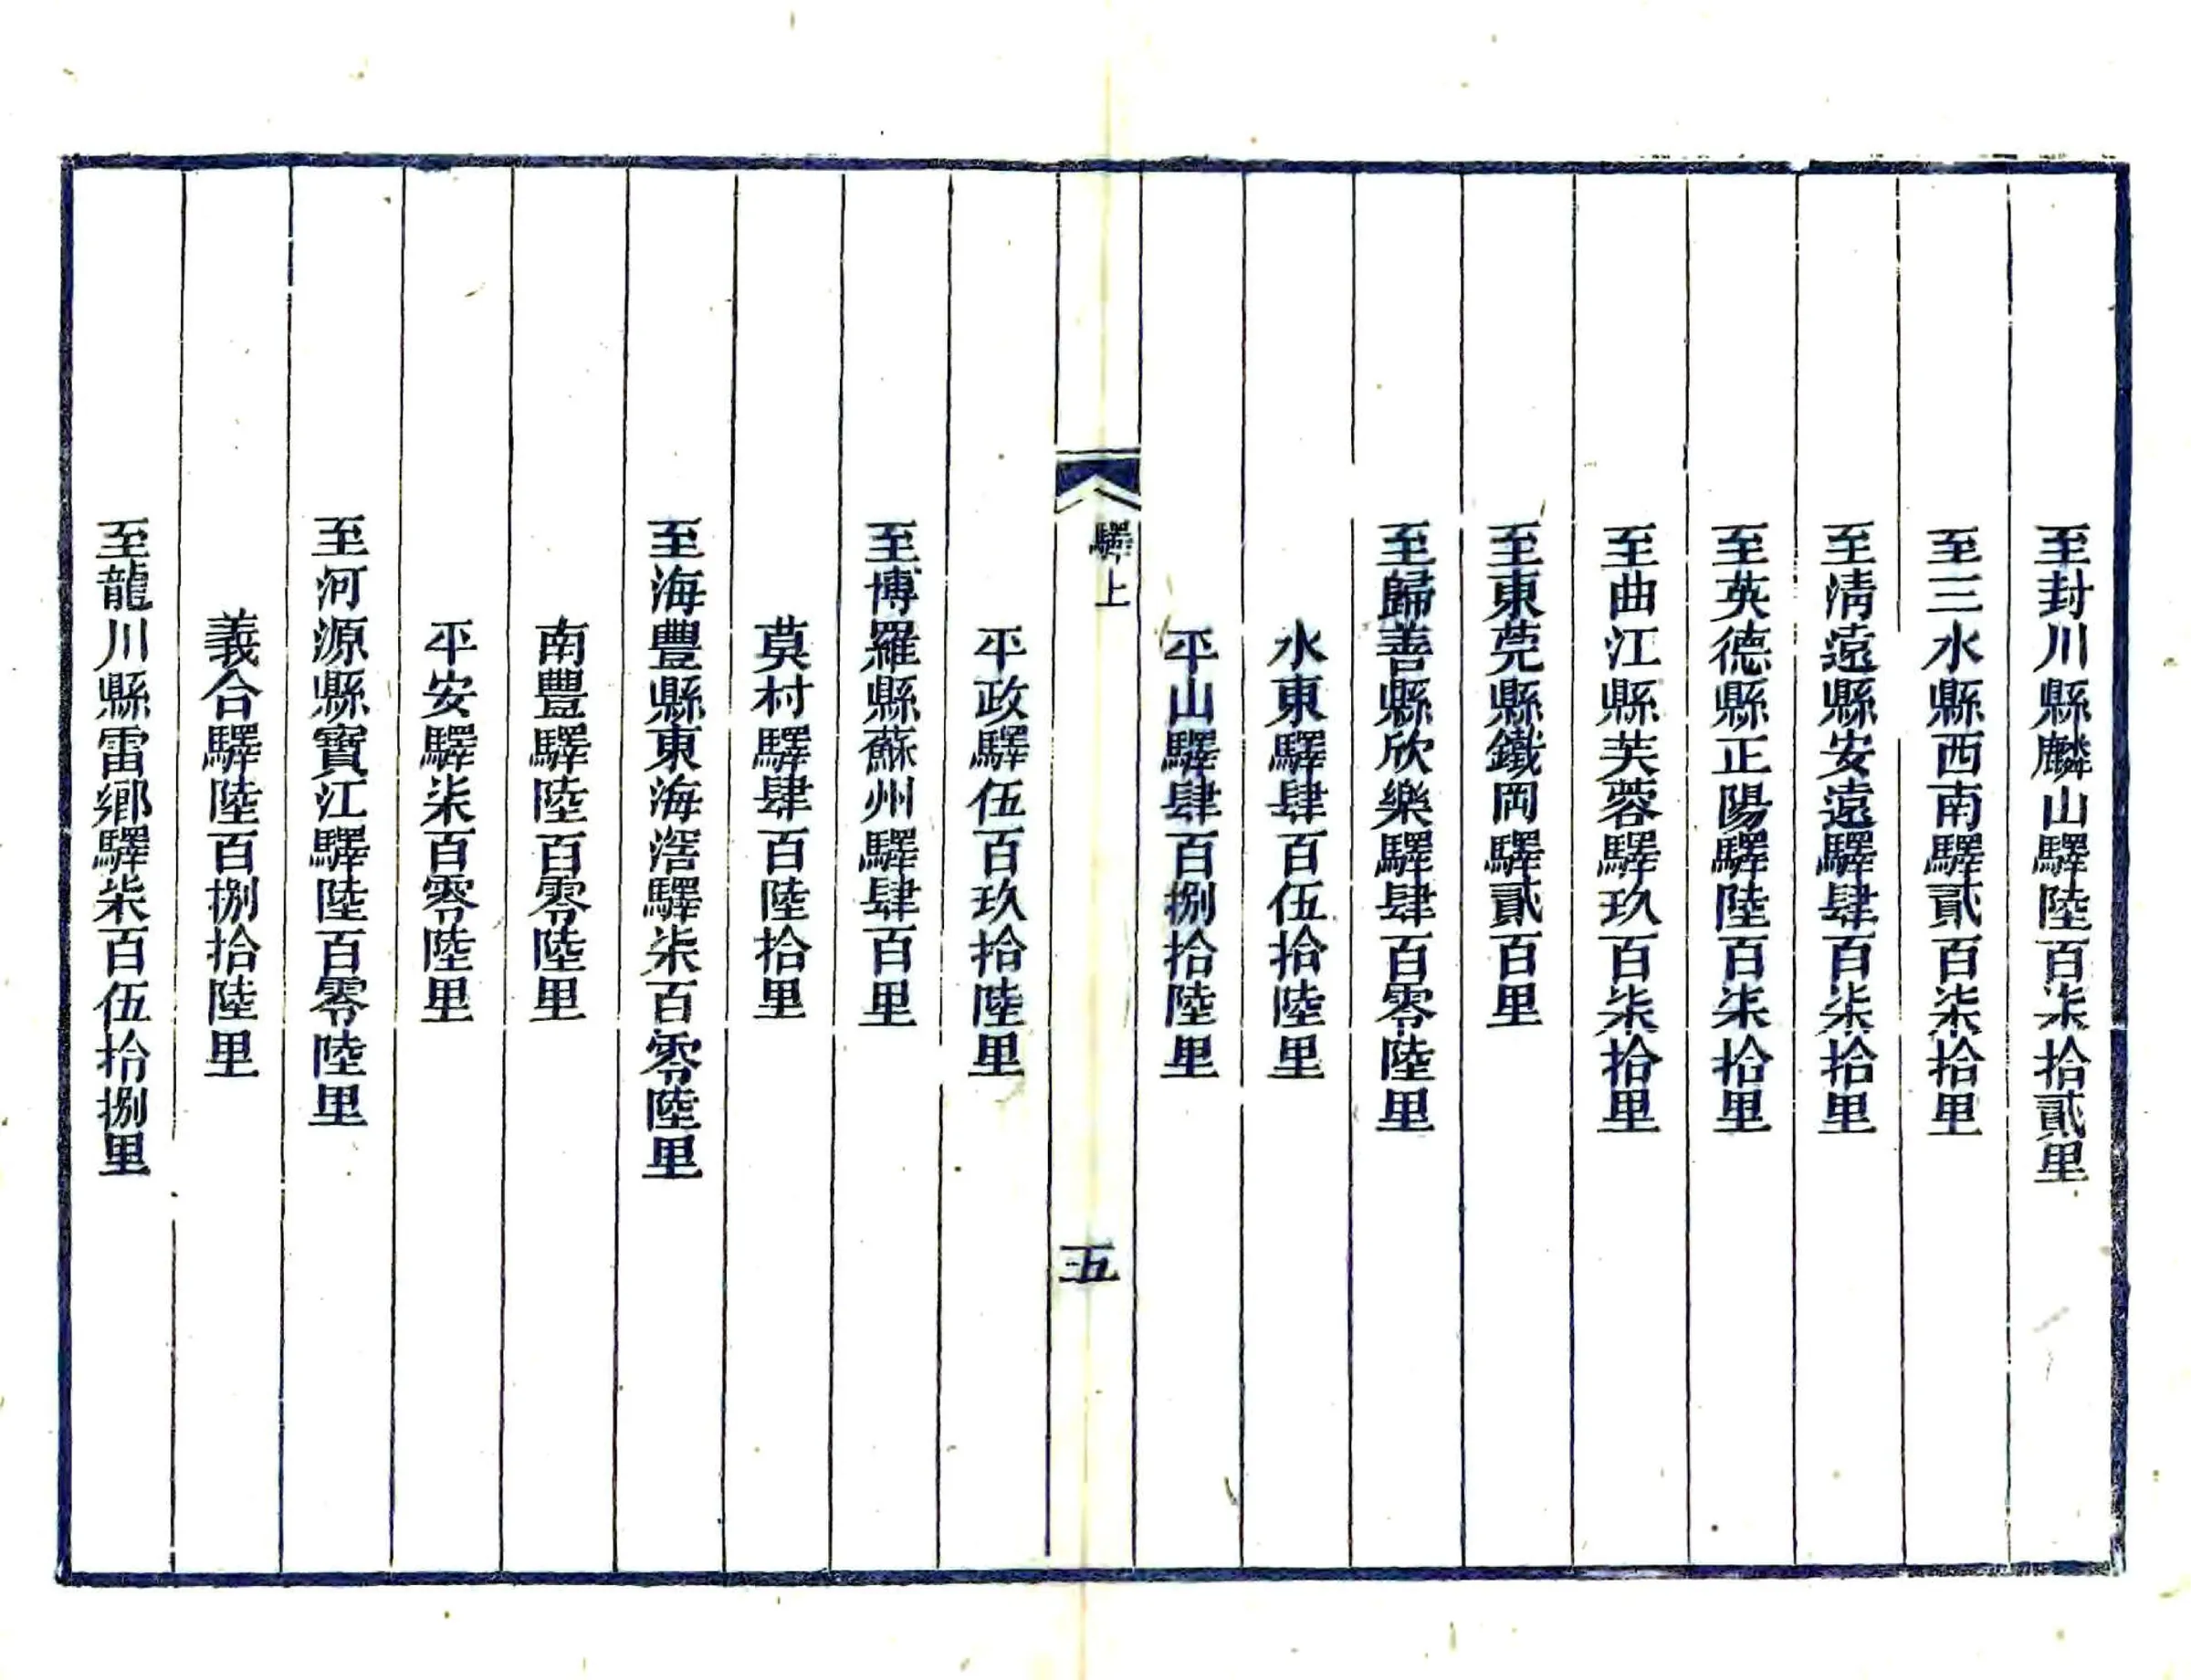 至封川縣麟山驛陸百柒拾貳里
至三水縣西南驛貳百柒拾里
至清遠縣安遠驛肆百柒拾里
至英德縣正陽驛陸百柒拾里
至曲江縣芙蓉驛玖百柒拾里
至東莞縣鐵岡驛貳百里
至歸善縣欣樂驛肆百零陸里
水東驛肆百伍拾陸里
平山驛肆百捌拾陸里
驛上
五
平政驛伍百玖拾陸里
至博羅縣蘇州驛肆百里
莫村驛肆百陸拾里
至海豐縣東海滘驛柒百零陸里
南豐驛陸百零陸里
平安驛柒百零陸里
至河源縣寶江驛陸百零陸里
義合驛陸百捌拾陸里
至龍川縣雷鄉驛柒百伍拾捌里